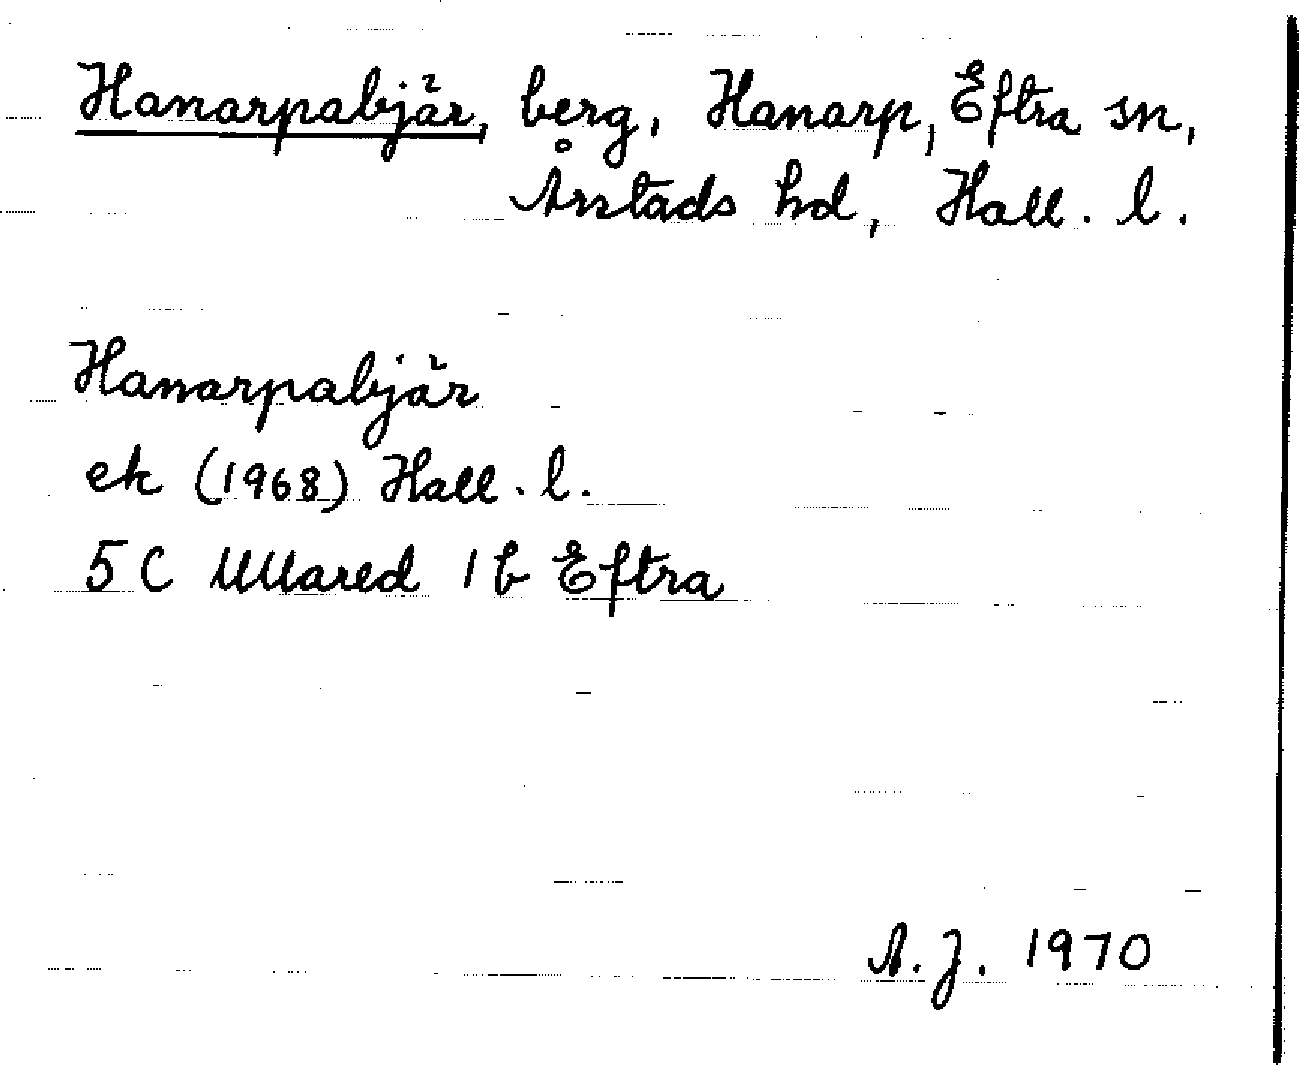 Hanarpabjär, berg, Hanarp, Eftra sn,
Årstads hd, Hall. l.
Hanarpabjär
ek (1968) Hall. l.
5C Ullared 1 b Eftra
A.J. 1970